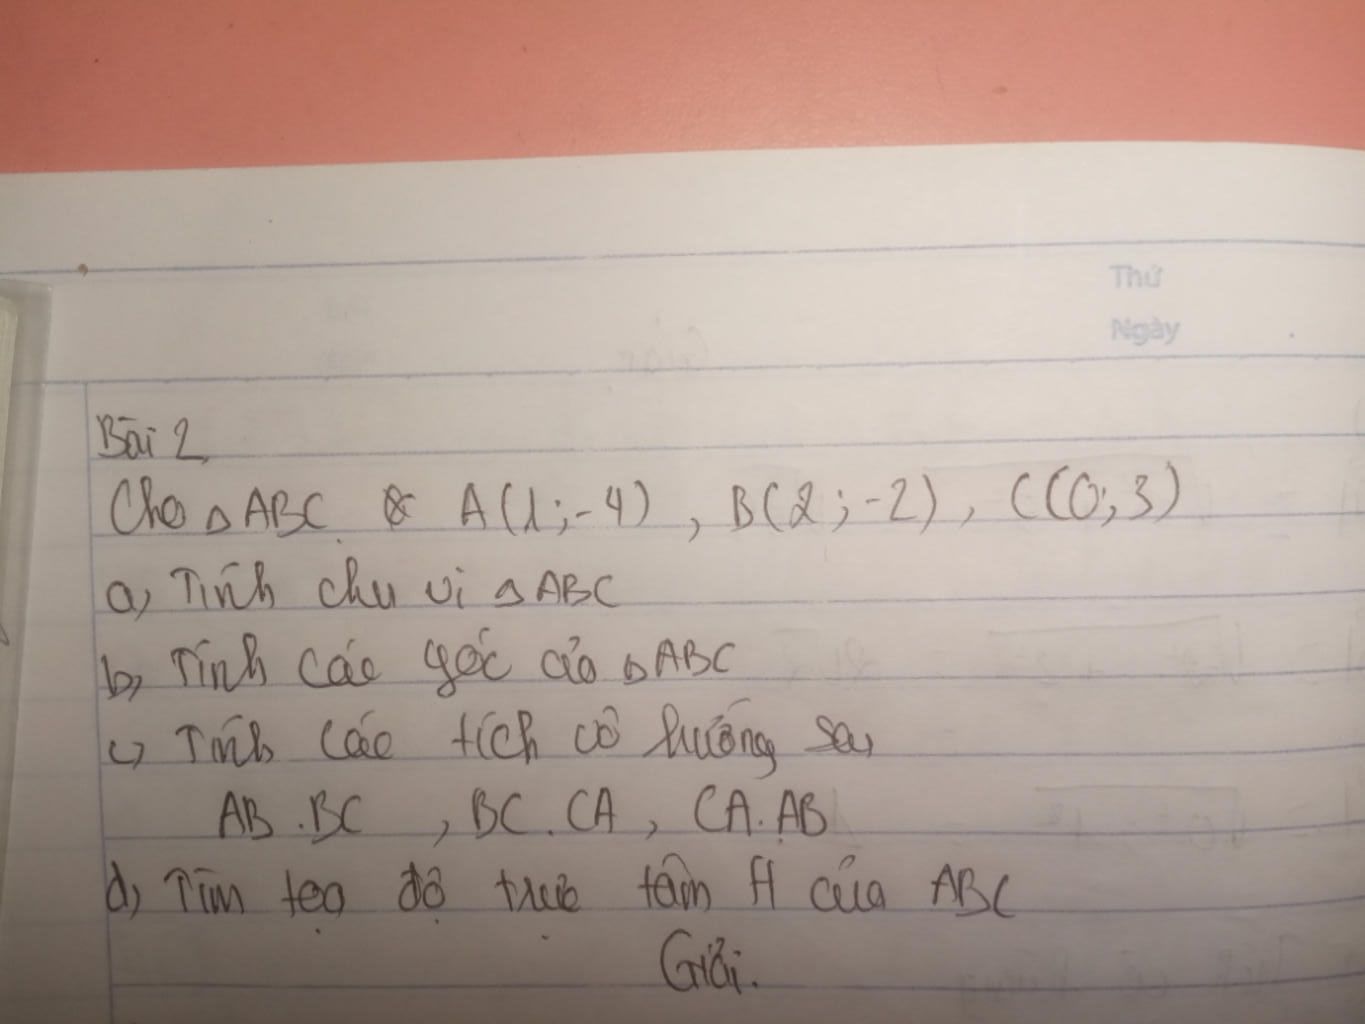 Thứ
Ngày
Bài 2,
Cho △ABC A(1;-4), B(2;-2), C(0;3)
a, Tính chu vi △ABC
b, Tính các góc của △ABC
c, Tính các tích vô hướng sau
AB.BC, BC.CA, CA.AB
d, Tìm tọa độ trực tâm H của ABC
Giải.